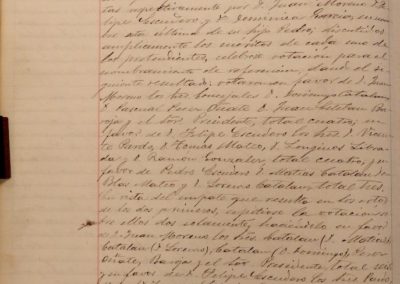 tas respectivamente por D. Juan Moreno D. Fe-
lipe Escudero y D. Domenica Garcia, en nom-
bre esta última de su hijo Pedro; discutidos
ampliamente los méritos de cada uno de
los pretendientes, celebrose votación para el
nombramiento de referencia, dando el si-
guiente resultado: votaron en favor de D. Juan
Moreno los Sres. Concejales D. Domingo Catalan
D. Pascual Perez Oñate D. Juan
y el Sor Presidente, total cuatro; en
favor de D. Felipe Escudero los Sres. D. Vicen-
te Pardo, D. Tomas Mateo, D. Longinos Libra-
da y D. Ramon Gonzalez, total cuatro, y en
favor de Pedro Escudero D. Matias Catalan D.
Blas Mateo y D. Lorenzo Catalan, total tres.
En vista del empate que resulta en los votos
de los dos primeros, repitiose la votacion
los dos solamente, haciendolo en favor
de D. Juan Moreno los Sres. Catalan (D. Matias)
Catalan (D. Lorenzo), Catalan (D. Domingo) Perez
Oñate, y el Sor Presidente, total seis
y en favor de D. Felipe Escudero los Sres Pardo